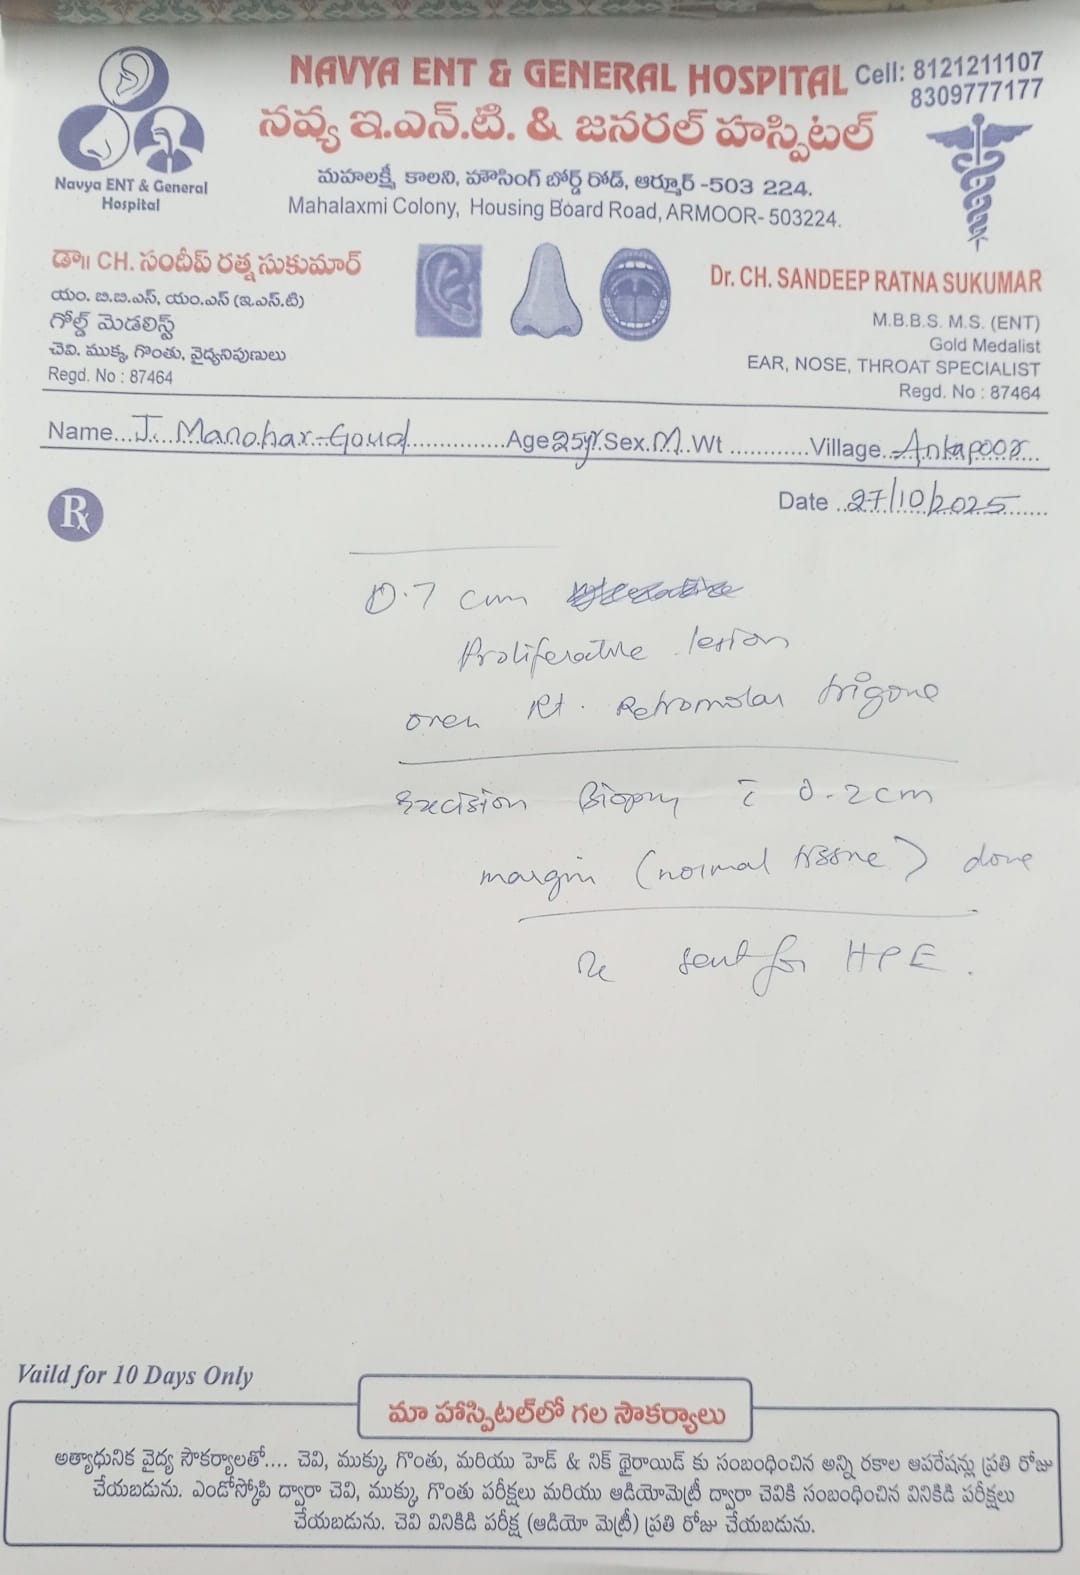 NAVYA ENT & GENERAL HOSPITAL
Cell: 8121211107
8309777177
నవ్య ఇ.ఎన్.టి. & జనరల్ హాస్పిటల్
Navya ENT & General
Hospital
మహాలక్ష్మీ కాలని, హౌసింగ్ బోర్డ్ రోడ్, ఆర్మూర్ -503 224.
Mahalaxmi Colony, Housing Board Road, ARMOOR- 503224.
డా॥ CH. సందీప్ రత్న సుకుమార్
యం. బి.బి.ఎస్, యం.ఎస్ (ఇ.ఎన్.టి)
గోల్డ్ మెడలిస్ట్
చెవి. ముక్కు, గొంతు, వైద్యనిపుణులు
Regd. No : 87464
Dr. CH. SANDEEP RATNA SUKUMAR
M.B.B.S. M.S. (ENT)
Gold Medalist
EAR, NOSE, THROAT SPECIALIST
Regd. No : 87464
Name...J. Manohar Goud............Age 25yr.Sex.M..Wt ............Village..Ankapoor...
Rx
Date ..27/10/2025......
0.7 cm
Proliferative lesion
over Rt. Retromolar trigone
Excision Biopsy c̄ 0.2cm
margin (normal tissue) done
sent for HPE.
Vaild for 10 Days Only
మా హాస్పిటల్‌లో గల సౌకర్యాలు
అత్యాధునిక వైద్య సౌకర్యాలతో.... చెవి, ముక్కు గొంతు, మరియు హెడ్ & నెక్ థైరాయిడ్ కు సంబంధించిన అన్ని రకాల ఆపరేషన్లు ప్రతి రోజు
చేయబడును. ఎండోస్కోపి ద్వారా చెవి, ముక్కు గొంతు పరీక్షలు మరియు ఆడియోమెట్రీ ద్వారా చెవికి సంబంధించిన వినికిడి పరీక్షలు
చేయబడును. చెవి వినికిడి పరీక్ష (ఆడియో మెట్రీ) ప్రతి రోజు చేయబడును.